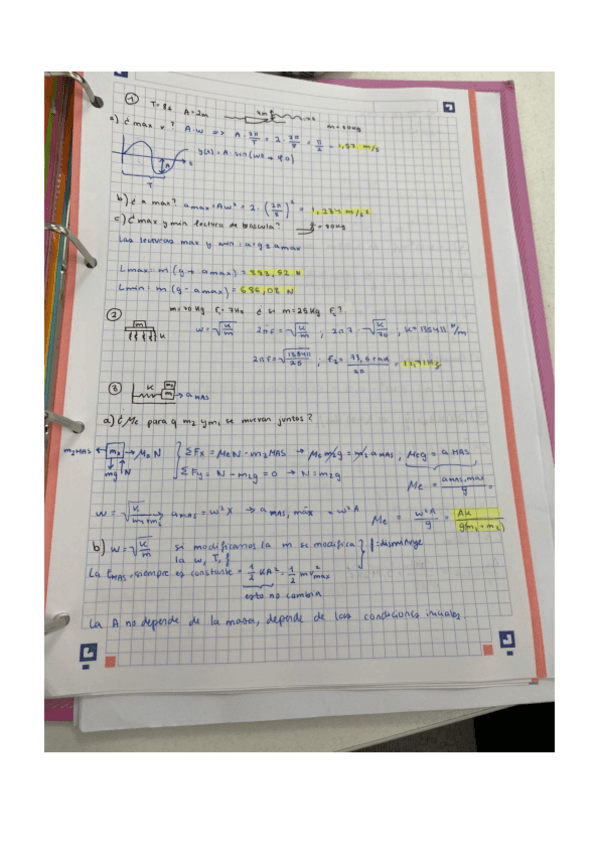 ① T = 8s A = 2m m = 80kg
a) ¿ max v? A·w => A·2π/T = 2·2π/8 = π/2 = 1,57 m/s
y(t) = A·sin(wt + φ0)
A
T
b) ¿a max? amax = Aw² = 2·(2π/8)² = 1,234 m/s²
c) ¿max y min lectura de báscula? = 80kg
Las lecturas max y min : a = g ± amax
Lmax = m(g + amax) = 883,52 N
Lmin = m(g - amax) = 686,08 N
② m = 70 Kg f1 = 7Hz ¿ si m = 25Kg f2?
m K
w = √K/m 2πf = √K/m ; 2π·7 = √K/70 ; K = 135411 N/m
2πf = √135411/25 ; f2 = 73,6 rad/2π = 11,71Hz
③ K m2 m1 → aMAS
a) ¿Me para q m2 y m1 se muevan juntos?
m2MAS ← m2 → MeN
mg N
ΣFx = MeN - m2MAS → Me m2g = m2 aMAS , Meg = aMAS
ΣFy = N - m2g = 0 → N = m2g
Me = aMAS,max/g =
w = √K/m1+m2 → aMAS = w²x → aMAS, máx = w²A
Me = w²A/g = AK/g(m1+m2)
b) w = √K/m si modificamos la m se modifica la w, T, f } f = disminuye
La EMAS siempre es constante = 1/2 KA² = 1/2 m v²max
esto no cambia
La A no depende de la masa, depende de las condiciones iniciales.